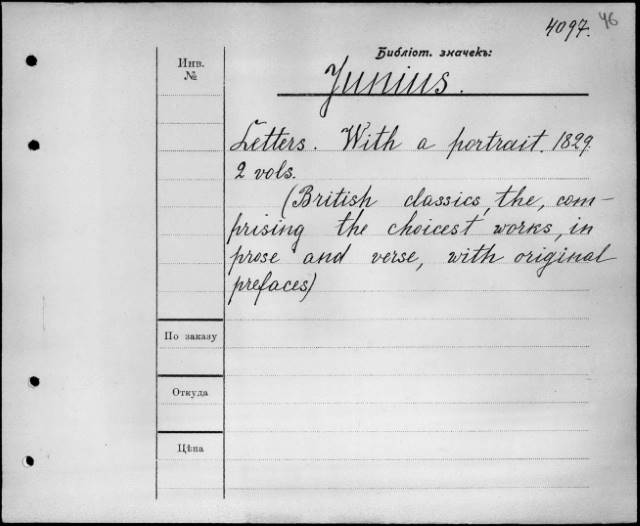 4097. 46
Библіот. значекъ:
Инв.
№
Junius.
Letters. With a portrait. 1829.
2 vols.
(British classics, the, com-
prising the choicest works, in
prose and verse, with original
prefaces)
По заказу
Откуда
Цѣна